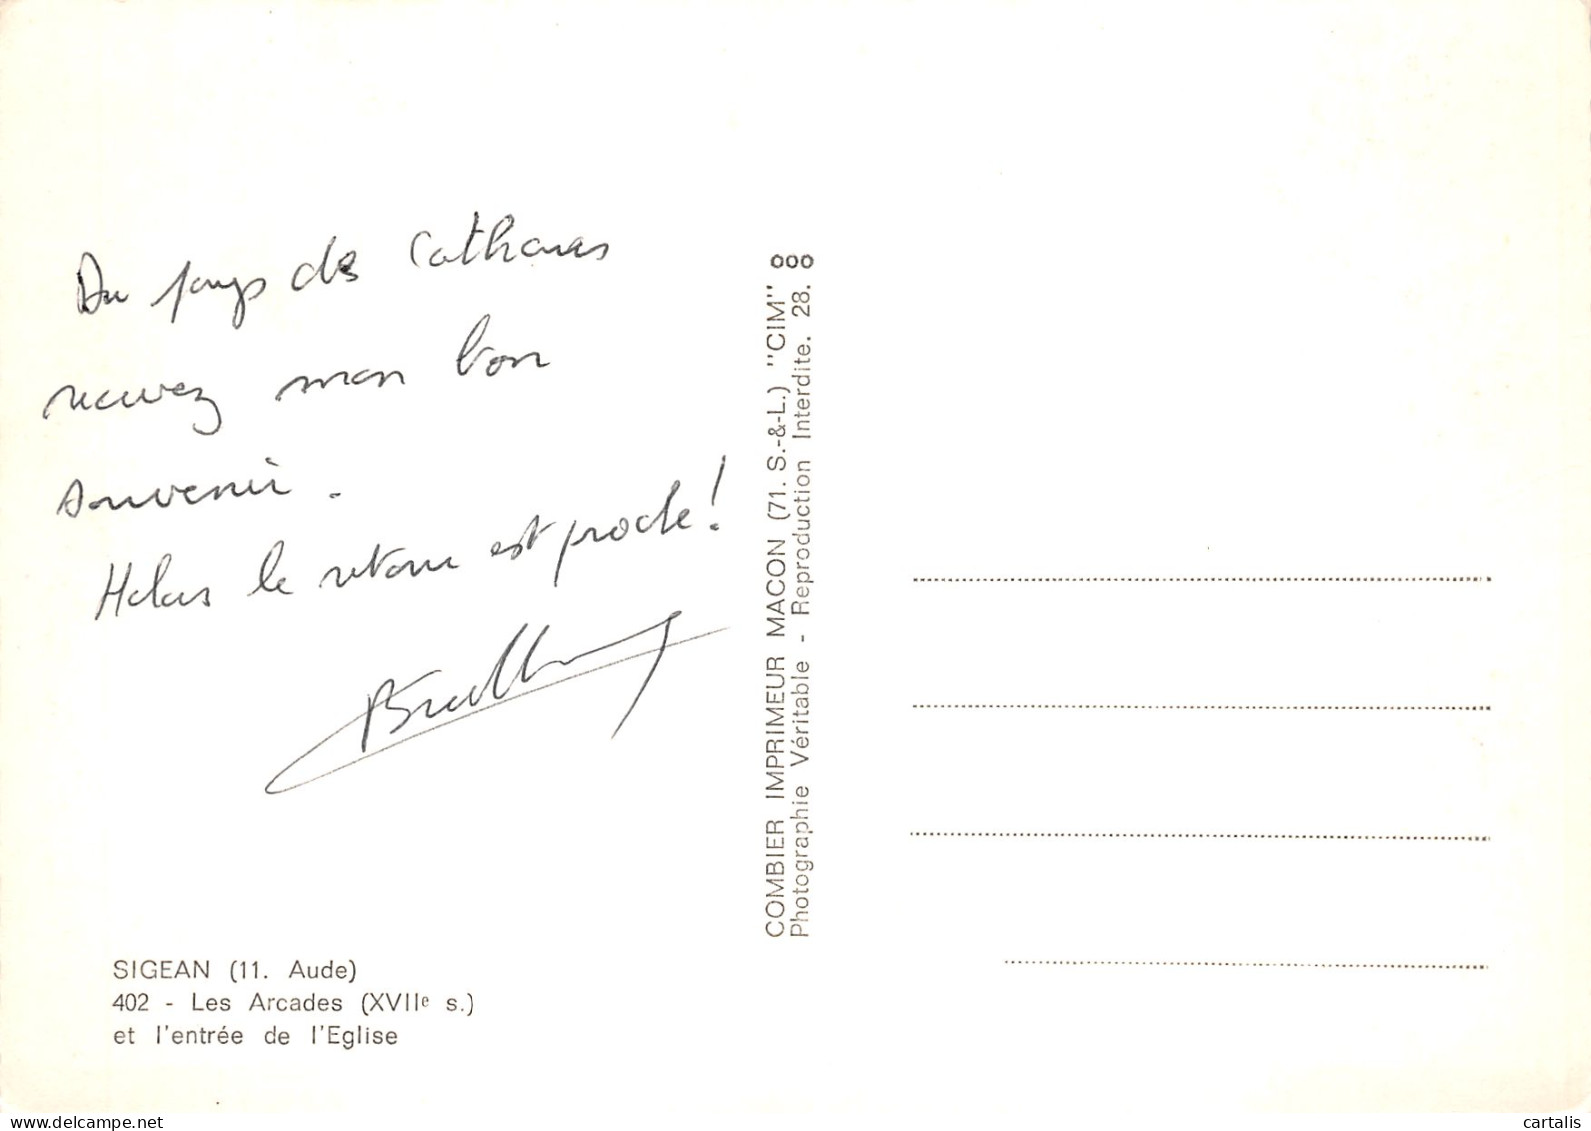 Du pays des Cathares
recevez mon bon
souvenir.
Helas le retour est proche!
SIGEAN (11. Aude)
402 - Les Arcades (XVIIe s.)
et l'entrée de l'Eglise
COMBIER IMPRIMEUR MACON (71. S.-&-L.) "CIM" ooo
Photographie Véritable - Reproduction Interdite. 28.
cartalis